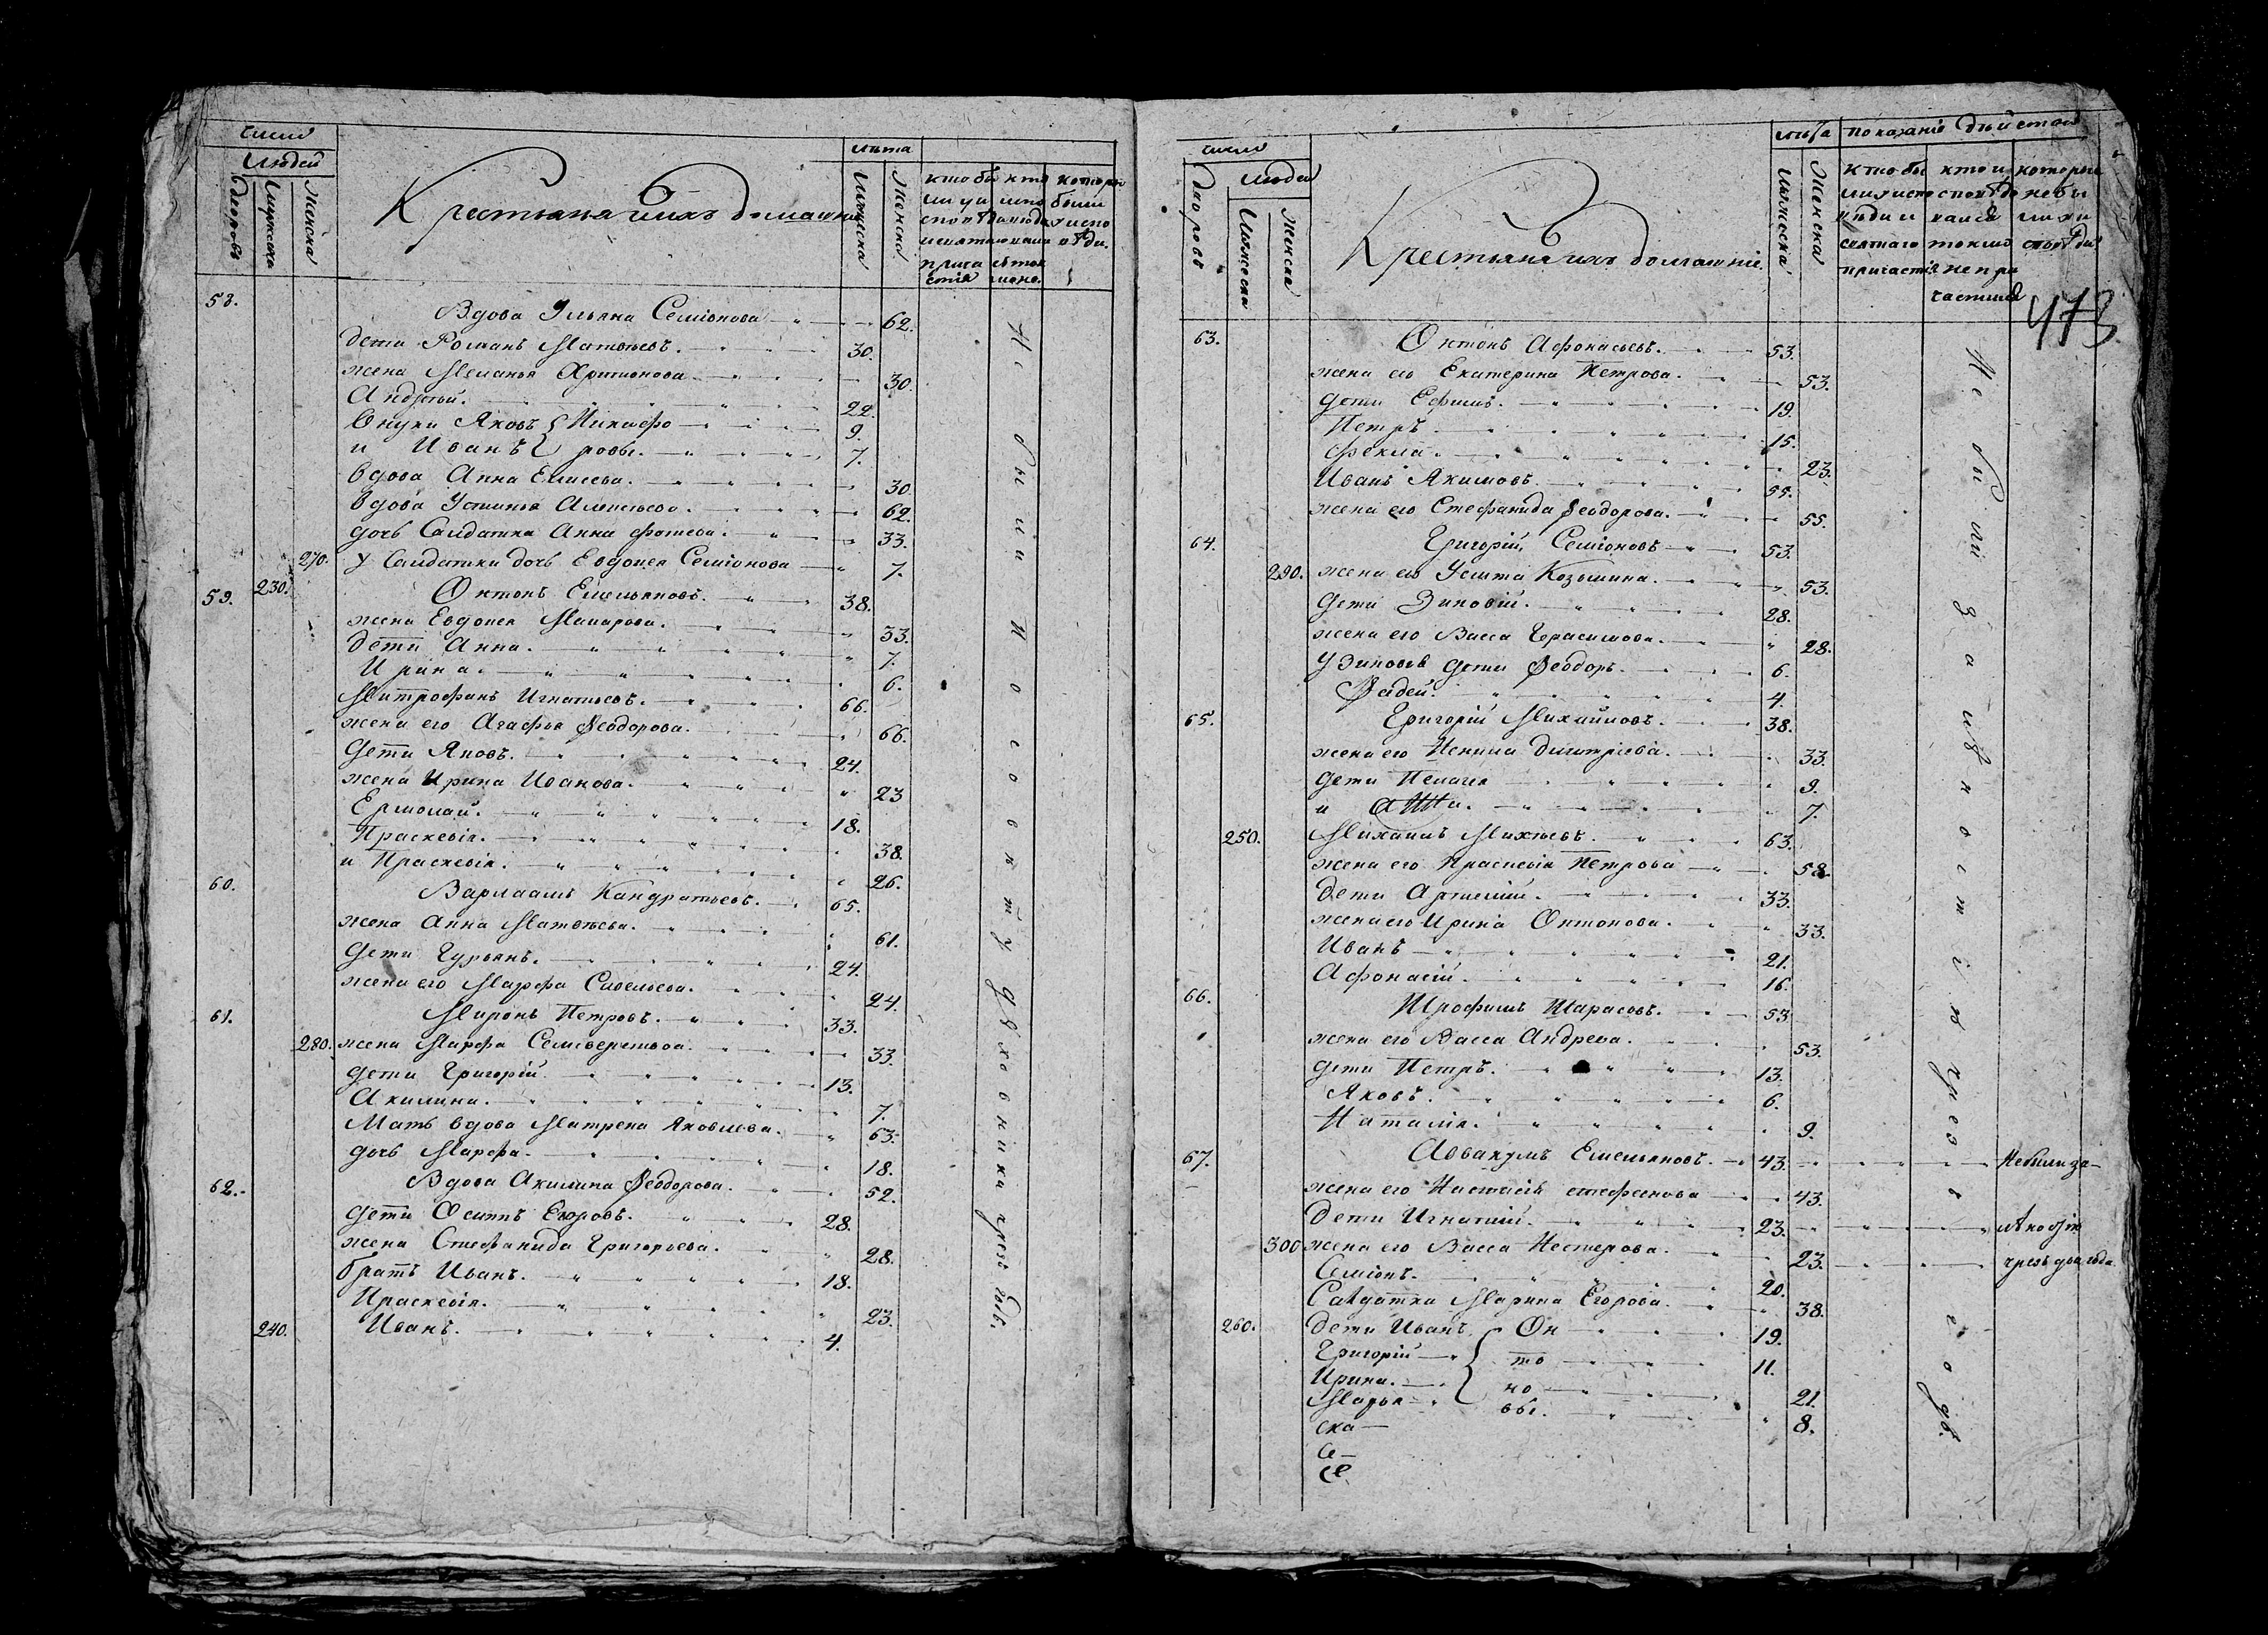 число
людей
дворовъ
мужеска
женска
Крестьяня и ихъ домашнии
лѣта
мужеска
женска
кто бы
ли у и
споведи
и святаго
прича
стія
кто
испо
ведались
а не
которы
были
у испо
вѣди.
58.
Вдова Ульяна Семіонова 62.
дети Романъ Матвѣевъ. 30.
жена Меланья Харитонова 30.
Андрей. 22.
Внуки Яковъ Никифо 9.
и Иванъ ровы. 7.
вдова Анна Елисеева. 30.
вдова Устинья Алексѣева. 62.
дочь Салдатка Анна Фотеева. 33.
270. У Салдатки дочь Евдокея Семіонова 7.
59. 230. Октонъ Емельяновъ. 38.
жена Евдокея Макарова. 33.
дети Анна. 7.
Ирина. 6.
Митрофанъ Игнатьевъ. 66.
жена его Агафья Ѳеодорова. 66.
дети Яковъ. 24.
жена Ирина Иванова. 23
Ермолай. 18.
Праскевія. 38.
и Праскевія. 26.
60.
Варлаамъ Кандратьевъ. 65.
жена Анна Матвѣева. 61.
дети Гурьянъ. 24.
жена его Марфа Савельева. 24.
61.
Миронъ Петровъ. 33.
280. жена Марфа Селиверстова. 33.
дети Григорій. 13.
Акилина. 7.
Мать вдова Матрена Яковлева. 63.
дочь Марфа. 18.
62.
Вдова Акилина Ѳеодорова. 52.
дети Осипъ Егоровъ. 28.
жена Стефанида Григорьева. 28.
братъ Иванъ. 18.
Праскевія. 23.
240. Иванъ. 4.
Не были
число
людей
дворовъ
мужеска
женска
Крестьяня и ихъ домашніе.
лѣта
мужеска
женска
показаніе дѣйства
кто бы
ли у испо
вѣди и
святаго
причастія
кто и
споведо
вался
токмо
не при
частился
которые
не бы
ли у и
споведи
473
63.
Октонъ Афонасьевъ. 53.
жена его Екатерина Петрова. 53.
дети Ефимъ. 19.
Петръ. 15.
Фекла. 23.
Иванъ Якимовъ. 55.
жена его Стефанида Ѳеодорова. 55.
64.
Григорій Семіоновъ 53.
290. жена его Улита Козьмина. 53.
дети Зиновій. 28.
жена его Васса Герасимова. 28.
У Зиновея дети Ѳеодоръ. 6.
Ѳадей. 4.
65.
Григорій Михайловъ. 38.
жена его Ненила Димитріева. 33.
дети Пелагея 9.
и 7.
250. Михаилъ Михѣевъ. 63.
жена его Праскевія Петрова 58.
дети Артемій. 33.
жена его Ирина Октонова. 33.
Иванъ 21.
Афонасій. 16.
66.
Трофимъ Тарасовъ. 53
жена его Васса Андреева. 53.
дети Петръ. 13.
Яковъ. 6.
Наталія. 9.
67.
Аввакумъ Емельяновъ. 43. Не были за
жена его Настасія Стефанова 43.
дети Игнатий. 23. лѣностію
300 жена его Васса Нестерова. 23. чрезъ два года
Семіонъ. 20.
Салдатка Марина Егорова. 38.
260. дети Иванъ Ок 19.
Григорій то 11.
Ирина. но 21.
Марья вы. 8.
Не были за лѣностію чрез